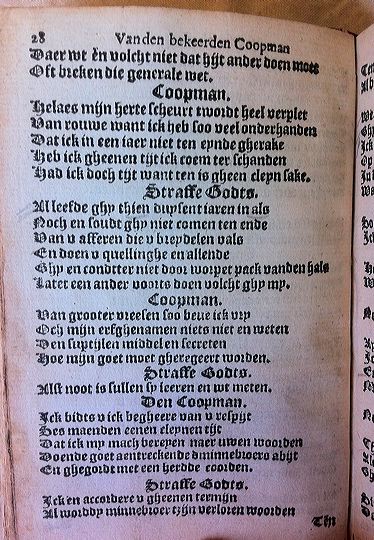 28 Vanden bekeerden Coopman
Daer wt en volcht niet dat hijt ander doen moet
Oft breken die generale wet.
Coopman.
Helaes mijn herte scheurt twordt heel verplet
Van rouwe want ick heb soo veel onderhanden
Dat ick in een iaer niet ten eynde gherake
Heb ick gheenen tijt ick coem ter schanden
Had ick doch tijt want ten is gheen cleyn sake.
Straffe Godts.
Al leefde ghy thien duysent iaren in als
Noch en soudt ghy niet comen ten ende
Van v afferen die v bleyven vals
En doen v quellinghe en allende
Ghy en condtter niet door worpet pack vanden hals
Latet een ander voorts doen volcht ghy my.
Coopman.
Van grooter vreesen soo beue ick vry
Och mijn erfghenamen niets niet en weten
Den suptijlen middel en secreten
Hoe mijn goet moet gheregeert worden.
Straffe Godts.
Alst noot is sullen sy leeren en wt meten.
Den Coopman.
Ick bidts v ick begheere van v respijt
Ses maenden eenen cleynen tijt
Dat ick my mach bereyen naer uwen woorden
Doende goet aentreckende dminnebroers abijt
En ghegordt met een herdde coorden.
Straffe Godts.
Ick en accordere v gheenen termijn
Al worddy minnebroer tzijn verloren woorden
Ten